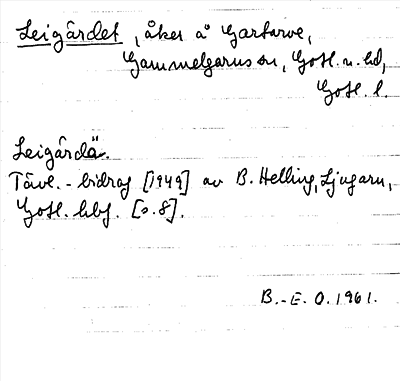 Leigårdet, åker å Gartarve,
Gammelgarns sn, Gotl. n. hd,
Gotl. l.
Leigårdä.
Tävl.-bidrag [1949] av B. Helling, Ljugarn,
Gotl. hbf. [s. 8].
B.-E. O. 1961.